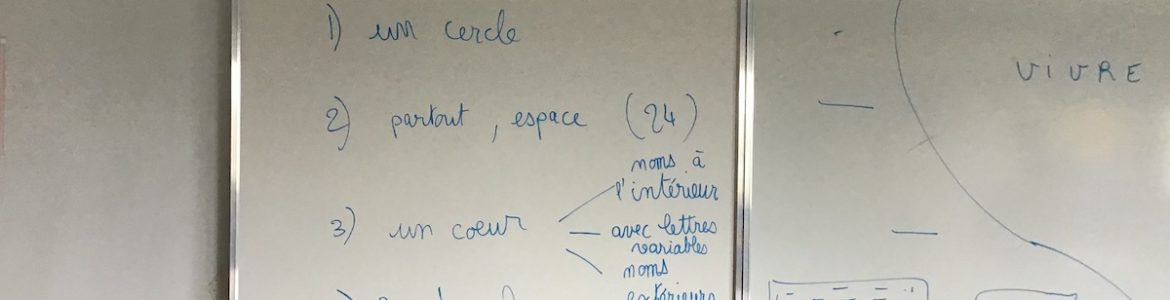 1) un cercle
2) partout, espace (24)
3) un coeur
noms à
l'intérieur
avec lettres
variables
noms
extérieurs
VIVRE